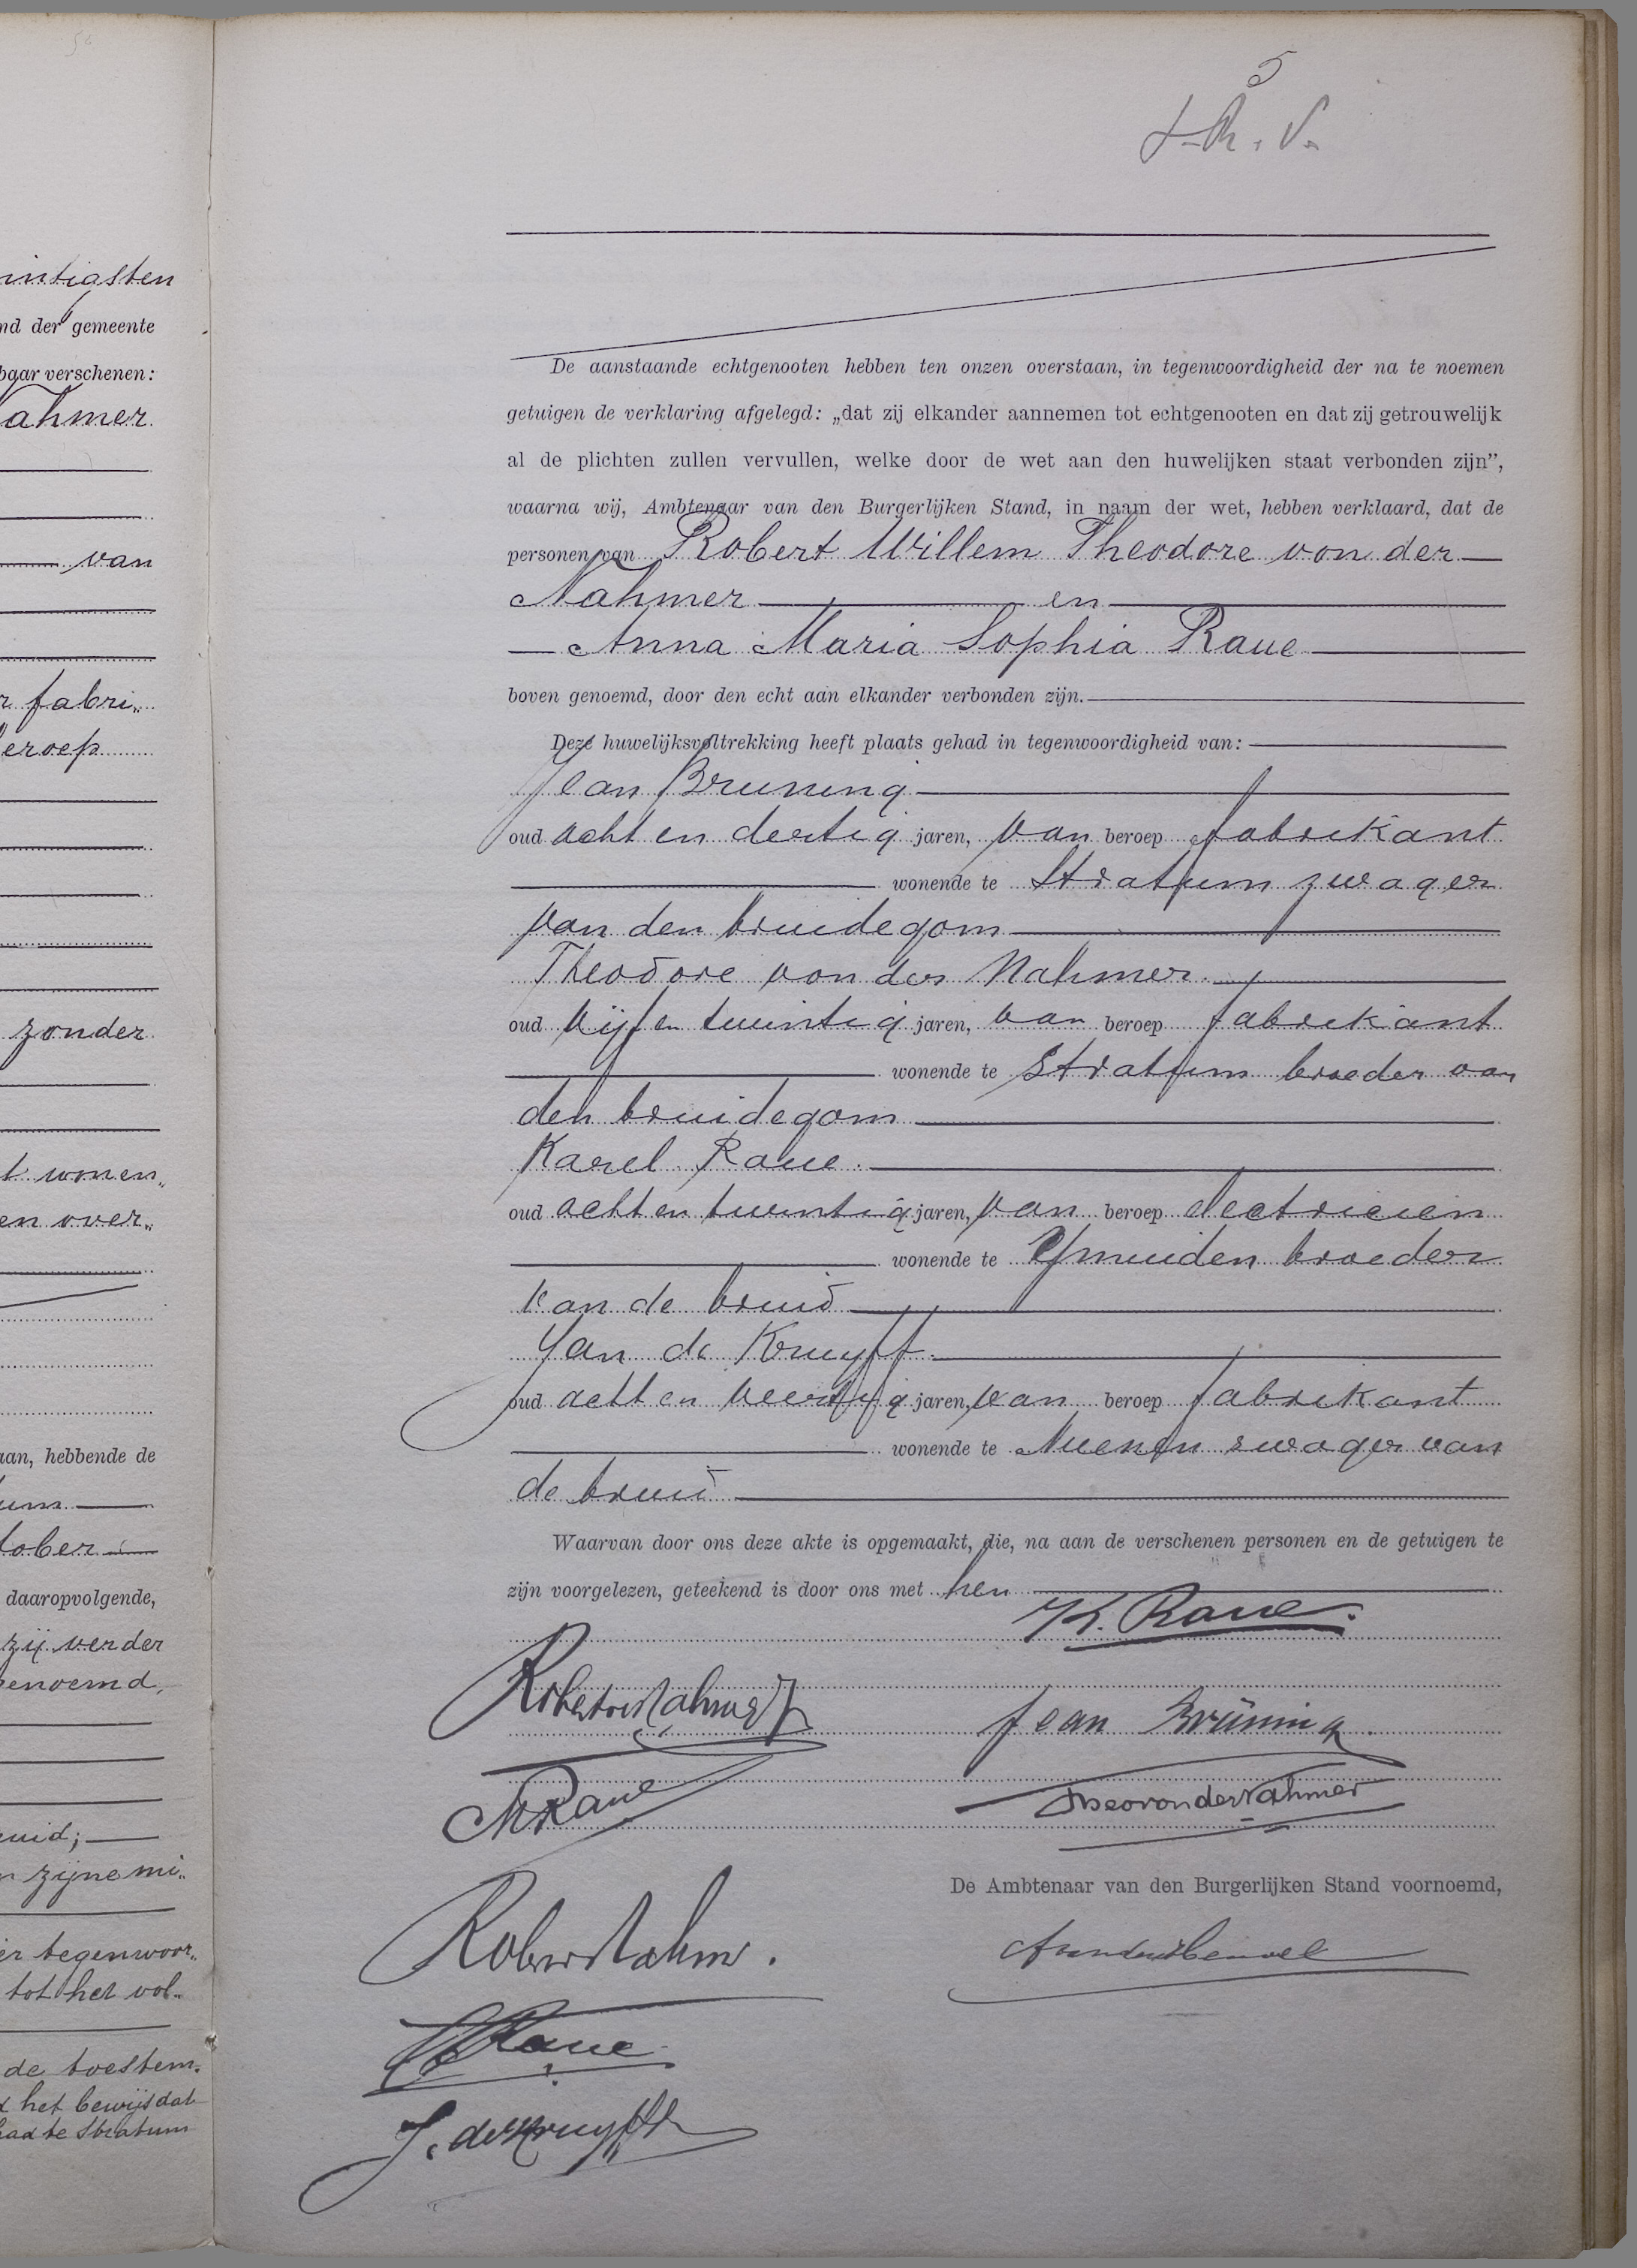 50
intigsten
nd der gemeente
baar verschenen:
Nahmer
van
r fabri„
beroep
zonder
t wonen„
en over„
aan, hebbende de
um
tober
daaropvolgende,
zij verder
genoemd,
ruid;
n zijne mi„
er tegenwoor„
tot het vol„
de toestem„
d het bewijs dat
had te Stratum
5
De aanstaande echtgenooten hebben ten onzen overstaan, in tegenwoordigheid der na te noemen
getuigen de verklaring afgelegd: „dat zij elkander aannemen tot echtgenooten en dat zij getrouwelijk
al de plichten zullen vervullen, welke door de wet aan den huwelijken staat verbonden zijn”,
waarna wij, Ambtenaar van den Burgerlijken Stand, in naam der wet, hebben verklaard, dat de
personen van Robert Willem Theodore von der
Nahmer en
Anna Maria Sophia Raue
boven genoemd, door den echt aan elkander verbonden zijn.
Deze huwelijksvoltrekking heeft plaats gehad in tegenwoordigheid van:
Jean Bruning
oud acht en dertig jaren, van beroep fabrikant
wonende te Stratum zwager
van den bruidegom
Theodore von der Nahmer
oud vijf en twintig jaren, van beroep fabrikant
wonende te Stratum broeder van
den bruidegom
Karel Raue.
oud acht en twintig jaren, van beroep electricien
wonende te Ymuiden broeder
van de bruid
Jan de Kruyff
oud acht en veertig jaren, van beroep fabrikant
wonende te Nuenen zwager van
de bruid
Waarvan door ons deze akte is opgemaakt, die, na aan de verschenen personen en de getuigen te
zijn voorgelezen, geteekend is door ons met hen
K. Raue.
Jean Brüning.
MRaue
Theo von der Nahmer
De Ambtenaar van den Burgerlijken Stand voornoemd,
Raue
J. de Kruyff